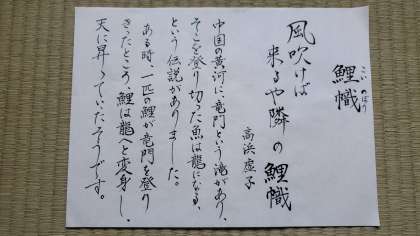 鯉幟
こい のぼり
風吹けば
来るや隣の鯉幟
高浜虚子
中国の黄河に、竜門という滝があり、
そこを登り切った魚は龍になる、
という伝説がありました。
ある時、一匹の鯉が竜門を登り
きったところ、鯉は龍へと変身し、
天に昇っていったそうです。